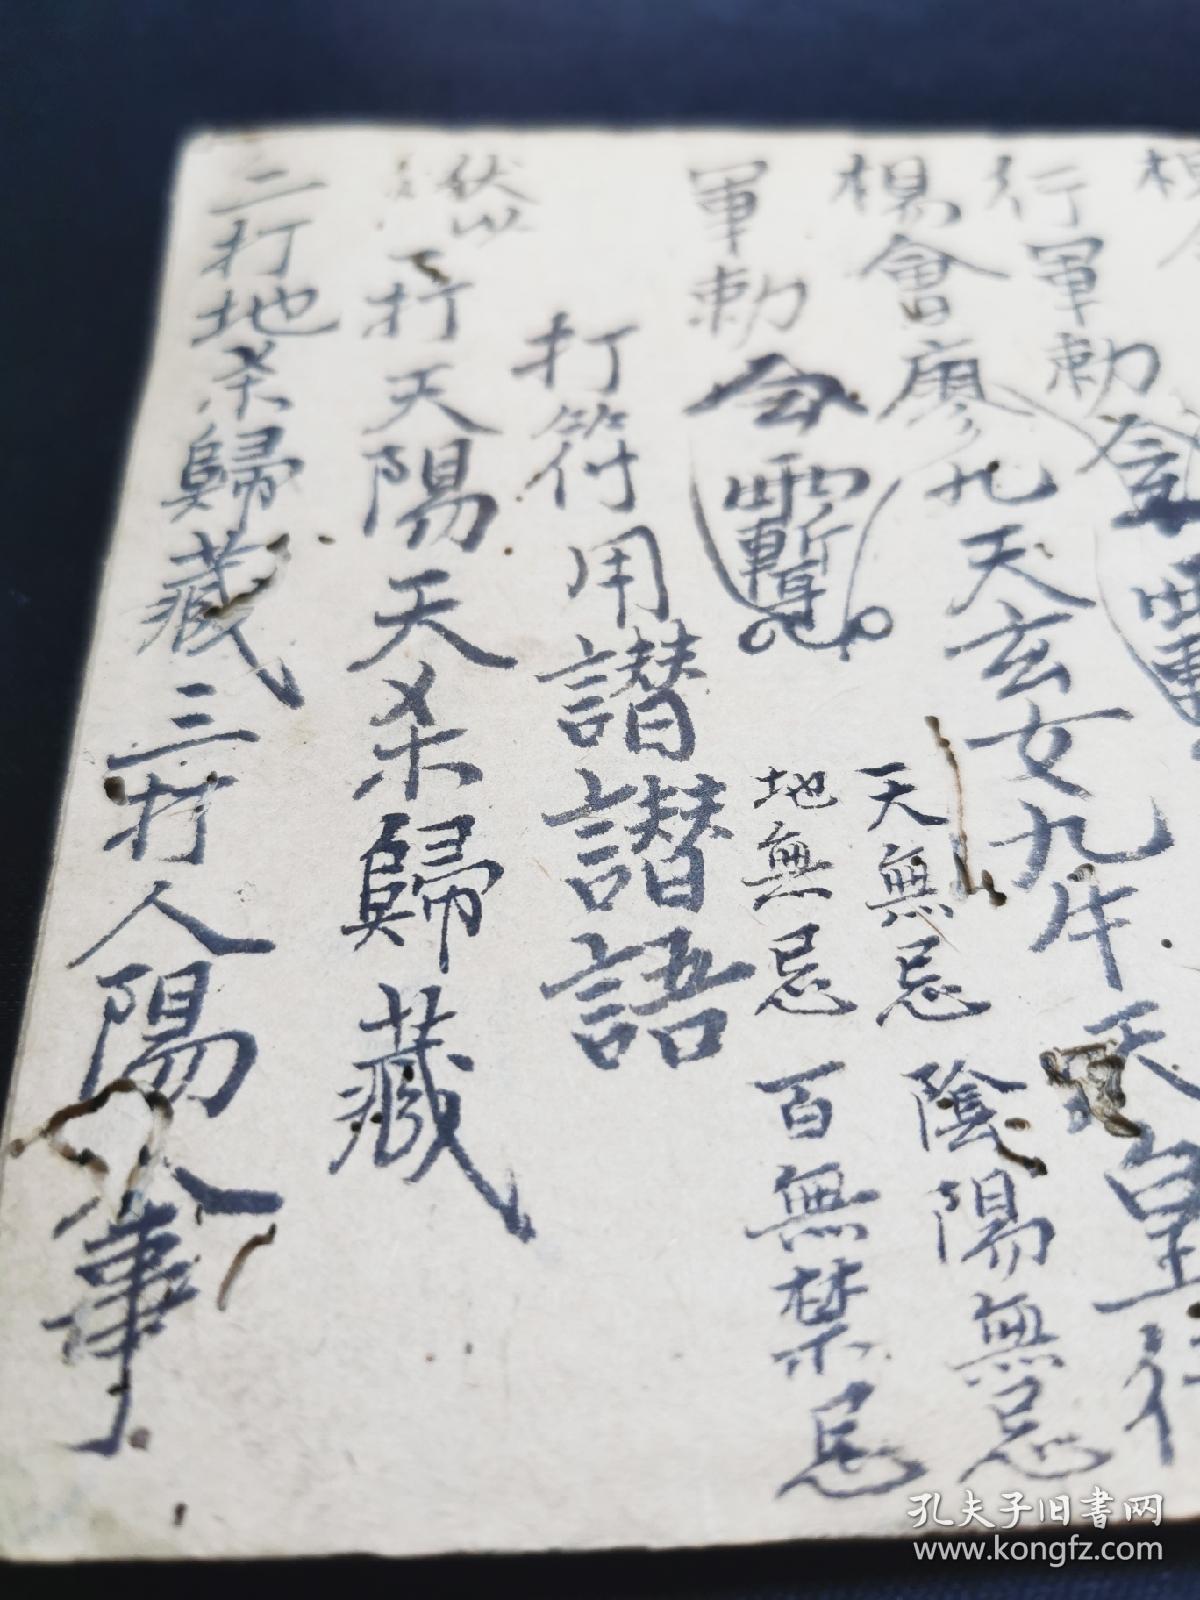 行軍勅令
楊會廖九天玄女九牛天皇行
軍勅令
天無忌 陰陽無忌
地無忌 百無禁忌
打符用
伏以
一打天陽天杀歸藏
二打地杀歸藏三打人陽
事
孔夫子旧书网
www.kongfz.com